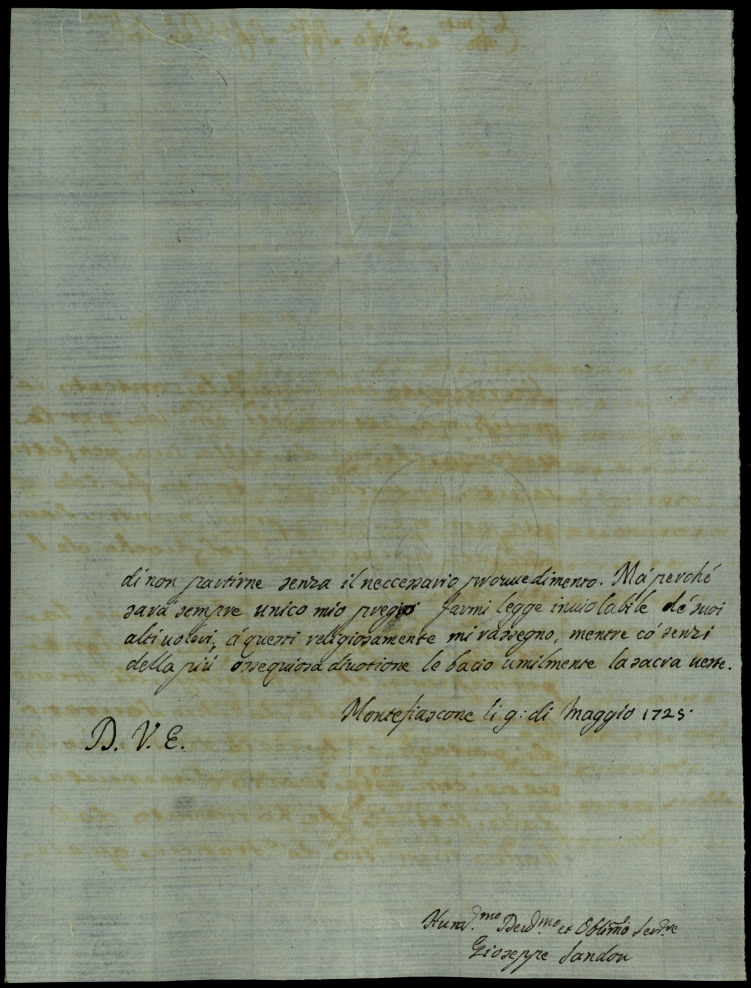 di non partirne senza il neccessario prouuedimento. Má perché
sará sempre unico mio pregio farmi legge inuiolabile dé suoi
alti uoleri, á questi religiosamente mi rassegno, mentre có sensi
della piú ossequiosa diuotione le bacio umilmente la sacra ueste.
Montefiascone li 9: di Maggio 1725.
D. V. E.
Hum.mo Deu.mo et Oblimo Seru.re
Gioseppe